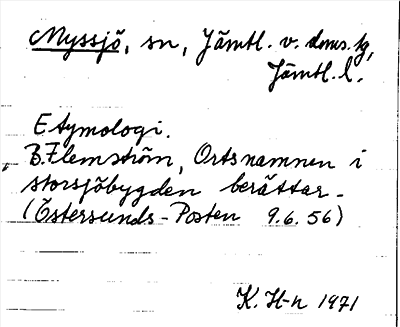 Myssjö, sn, Jämtl. v. doms.tg,
Jämtl. l.
Etymologi.
B. Flemström, Ortsnamnen i
storsjöbygden berättar.
(Östersunds-Posten 9.6.56)
K. H-n 1971